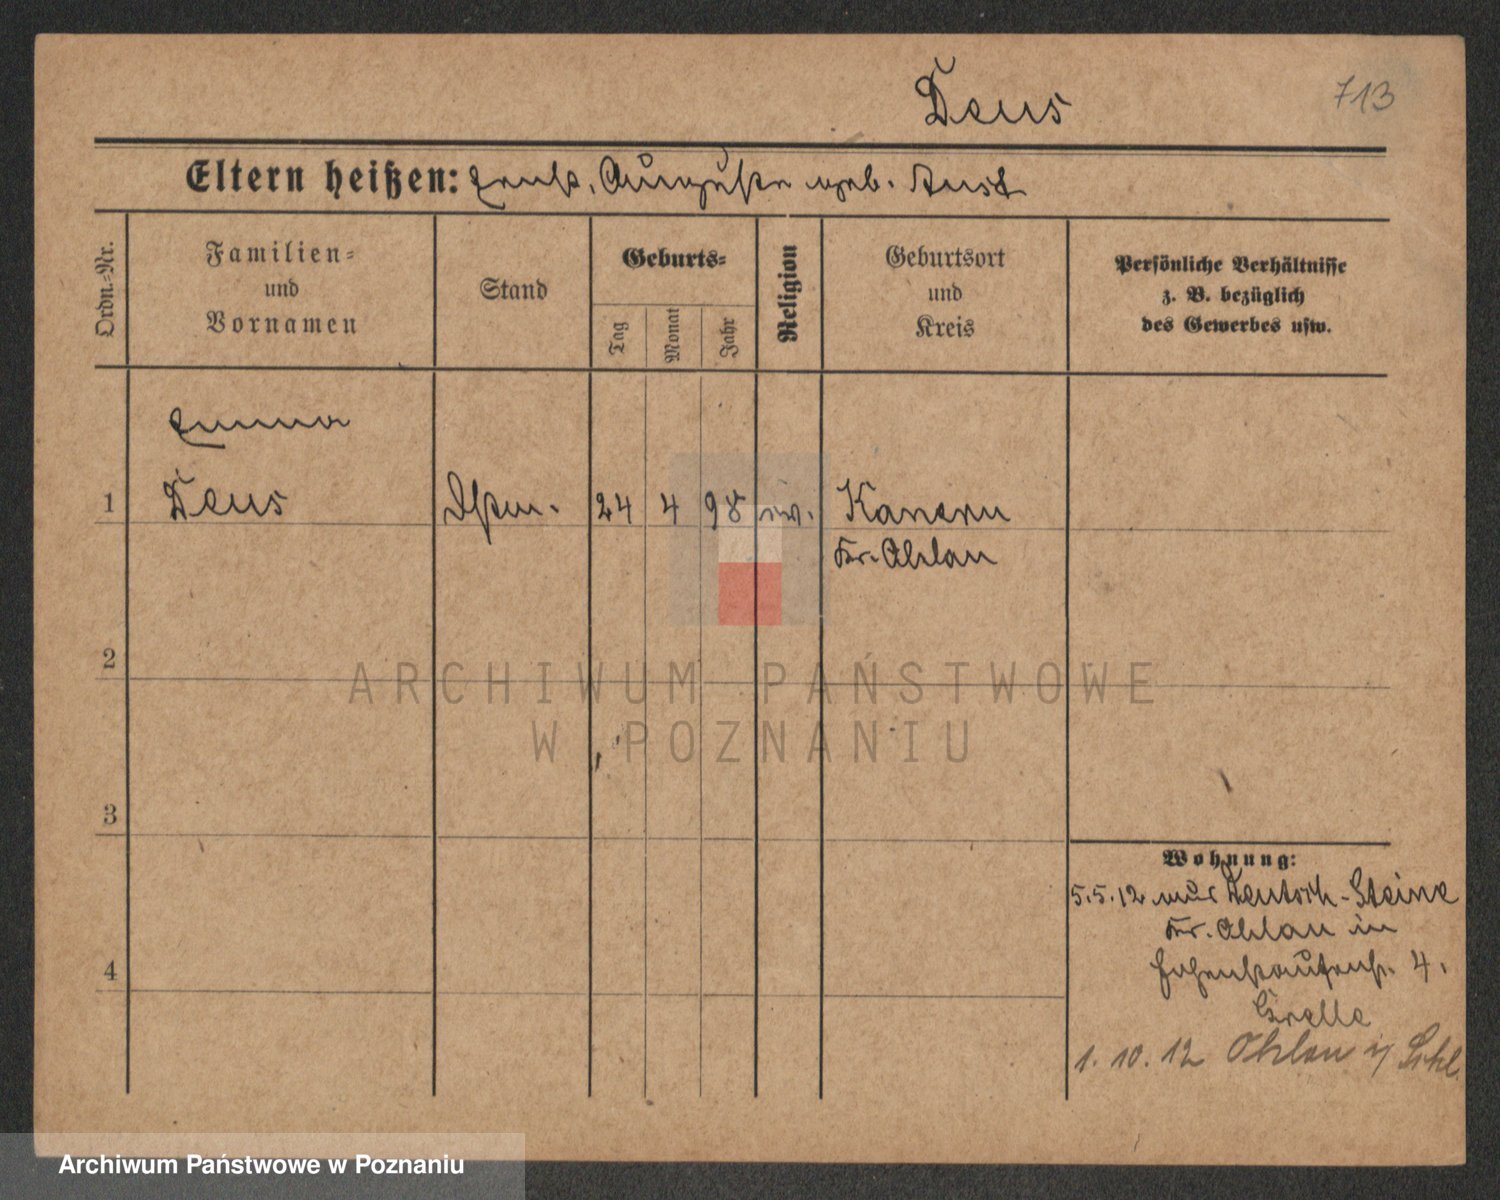 Deus
713
Eltern heißen: Ernst, Auguste geb. Aust
Ordn.-Nr.
Familien-
und
Vornamen
Stand
Geburts-
Tag
Monat
Jahr
Religion
Geburtsort
und
Kreis
Persönliche Verhältnisse
z. B. bezüglich
des Gewerbes usw.
Emma
1 Deus 24 4 98 ev. Kanern
Kr. Ohlau
2
3
4
Wohnung:
5.5.12 aus Deutsch-Steine
Kr. Ohlau in
Hohenstaufenstr. 4.
Grelle
1. 10. 12 Ohlau i/ Schl.
ARCHIWUM PAŃSTWOWE
W POZNANIU
Archiwum Państwowe w Poznaniu